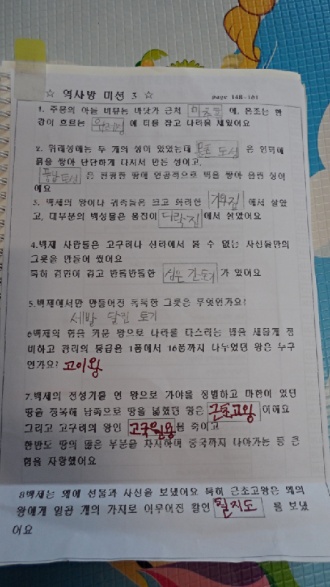 ☆ 역사방 미션 3 ☆
1. 주몽의 아들 비류는 바닷가 근처 미추홀 에, 온조는 한
강이 흐르는 위례성 에 터를 잡고 나라를 세웠어요
2. 위례성에는 두 개의 성이 있었는데 몽촌 토성 은 언덕에
흙을 쌓아 단단하게 다져서 만든 성이고,
풍납토성 은 편평한 땅에 인공적으로 벽을 쌓아 올린 성이
에요
3. 백제의 왕이나 귀족들은 크고 화려한 기와집 에서 살았
고, 대부분의 백성들은 움집이 에서 살았어요
4.백제 사람들은 고구려나 신라에서 볼 수 없는 자신들만의
그릇을 만들어 썼어요
특히 검은 반들반들한 가 있어요
5.백제에서만 만들어진 독특한 그릇은 무엇인가요?
세발 달린 토기
6백제의 힘을 키운 왕으로 나라를 다스리는 법을 새롭게 정
비하고 관리의 등급을 1품에서 16품까지 나누었던 왕은 누구
인가요? 고이왕
7.백제의 전성기를 연 왕으로 가야를 정벌하고 마한이 있던
땅을 정복해 남쪽으로 땅을 넓혔던 왕은 근초고왕 이에요
그리고 고구려의 왕인 고국원왕 을 죽이고
한반도 땅의 많은 부분을 차지하며 중국까지 나아가는 등 큰
힘을 자랑했어요
8백제는 왜에 선물과 사신을 보냈어요 특히 근초고왕은 왜의
왕에게 일곱 개의 가지로 이루어진 칼인 칠지도 를 보냈
어요